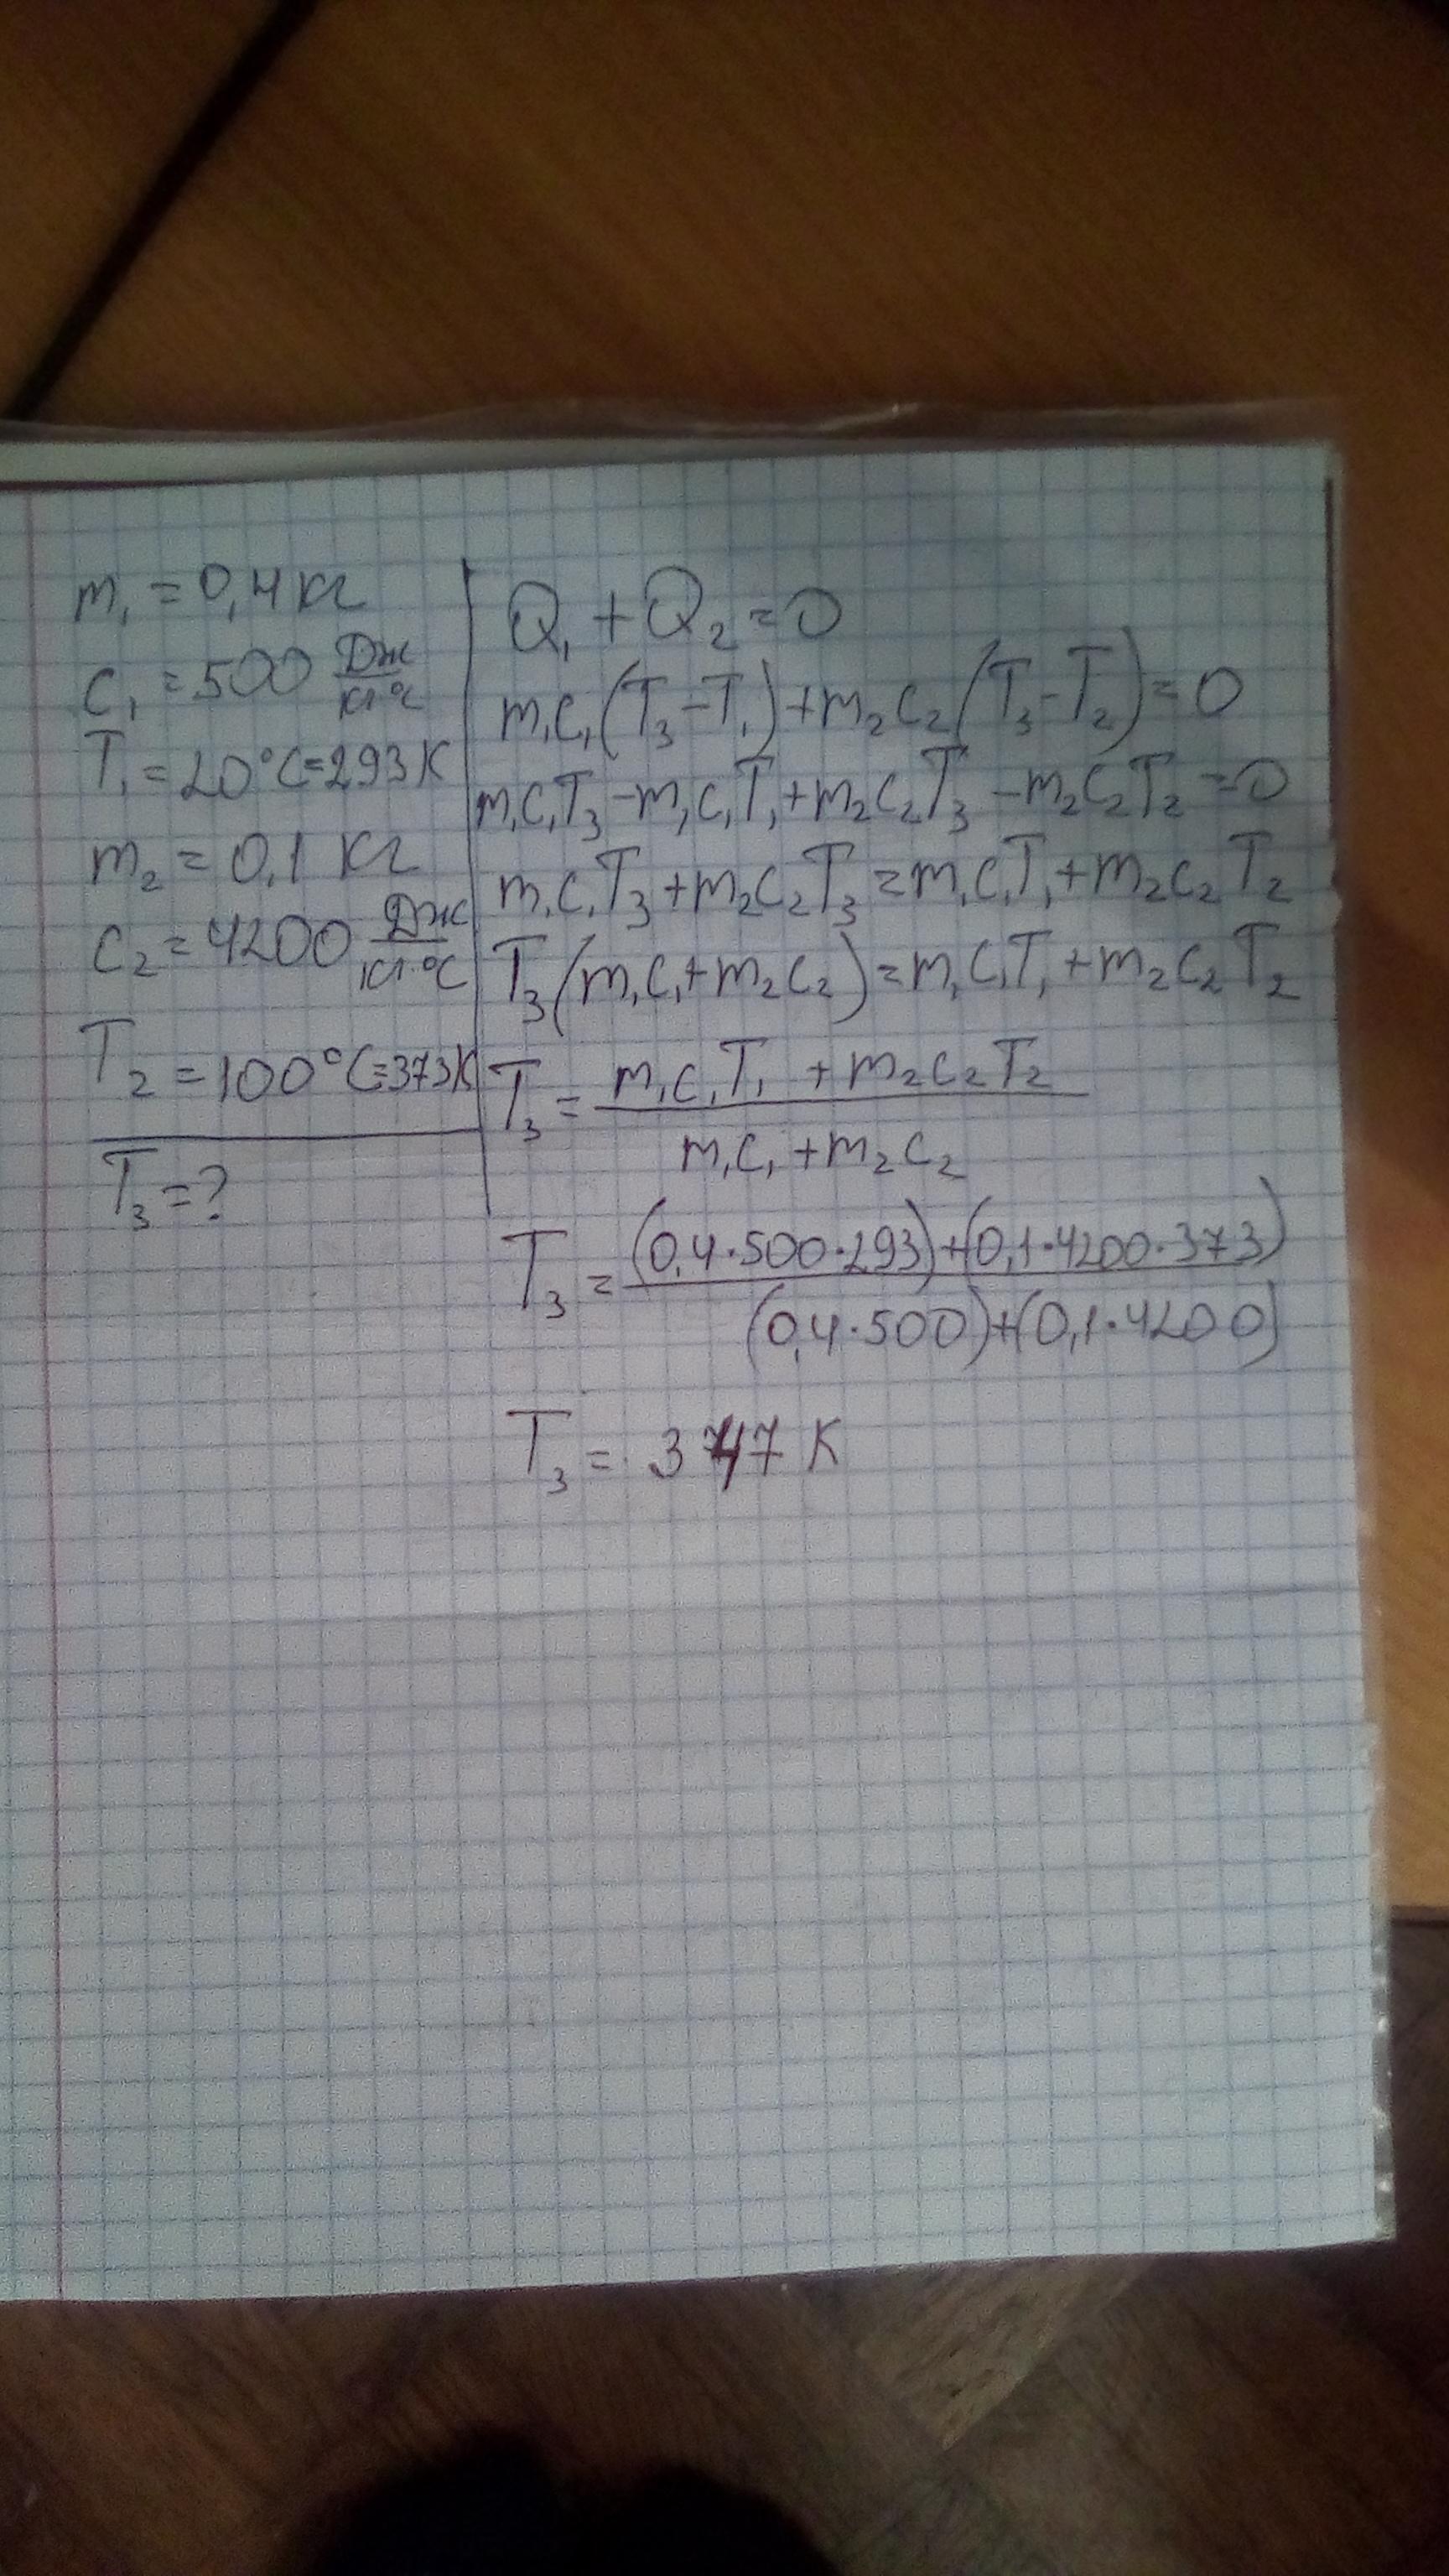 m₁ = 0,4 кг
c₁ = 500 Дж/кг°C
T₁ = 20°C = 293 K
m₂ = 0,1 кг
c₂ = 4200 Дж/кг·°C
T₂ = 100°C = 373 K
T₃ = ?
Q₁ + Q₂ = 0
m₁c₁(T₃ - T₁) + m₂c₂(T₃ - T₂) = 0
m₁c₁T₃ - m₁c₁T₁ + m₂c₂T₃ - m₂c₂T₂ = 0
m₁c₁T₃ + m₂c₂T₃ = m₁c₁T₁ + m₂c₂T₂
T₃(m₁c₁ + m₂c₂) = m₁c₁T₁ + m₂c₂T₂
T₃ = m₁c₁T₁ + m₂c₂T₂ / m₁c₁ + m₂c₂
T₃ = (0,4·500·293) + (0,1·4200·373) / (0,4·500) + (0,1·4200)
T₃ = 347 K